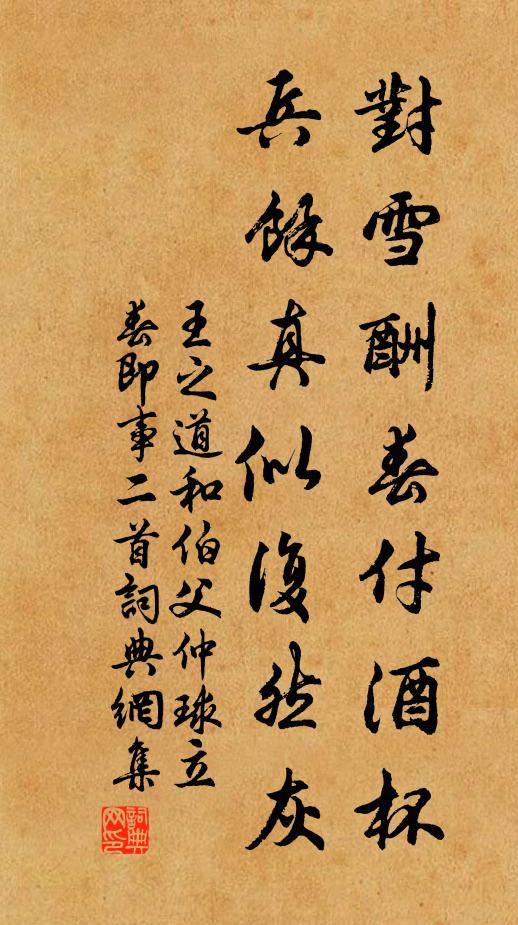 對雪酬春付酒杯
兵餘真似復然灰
王之道和伯父仲球立
春即事二首詞典網集
詞典网印